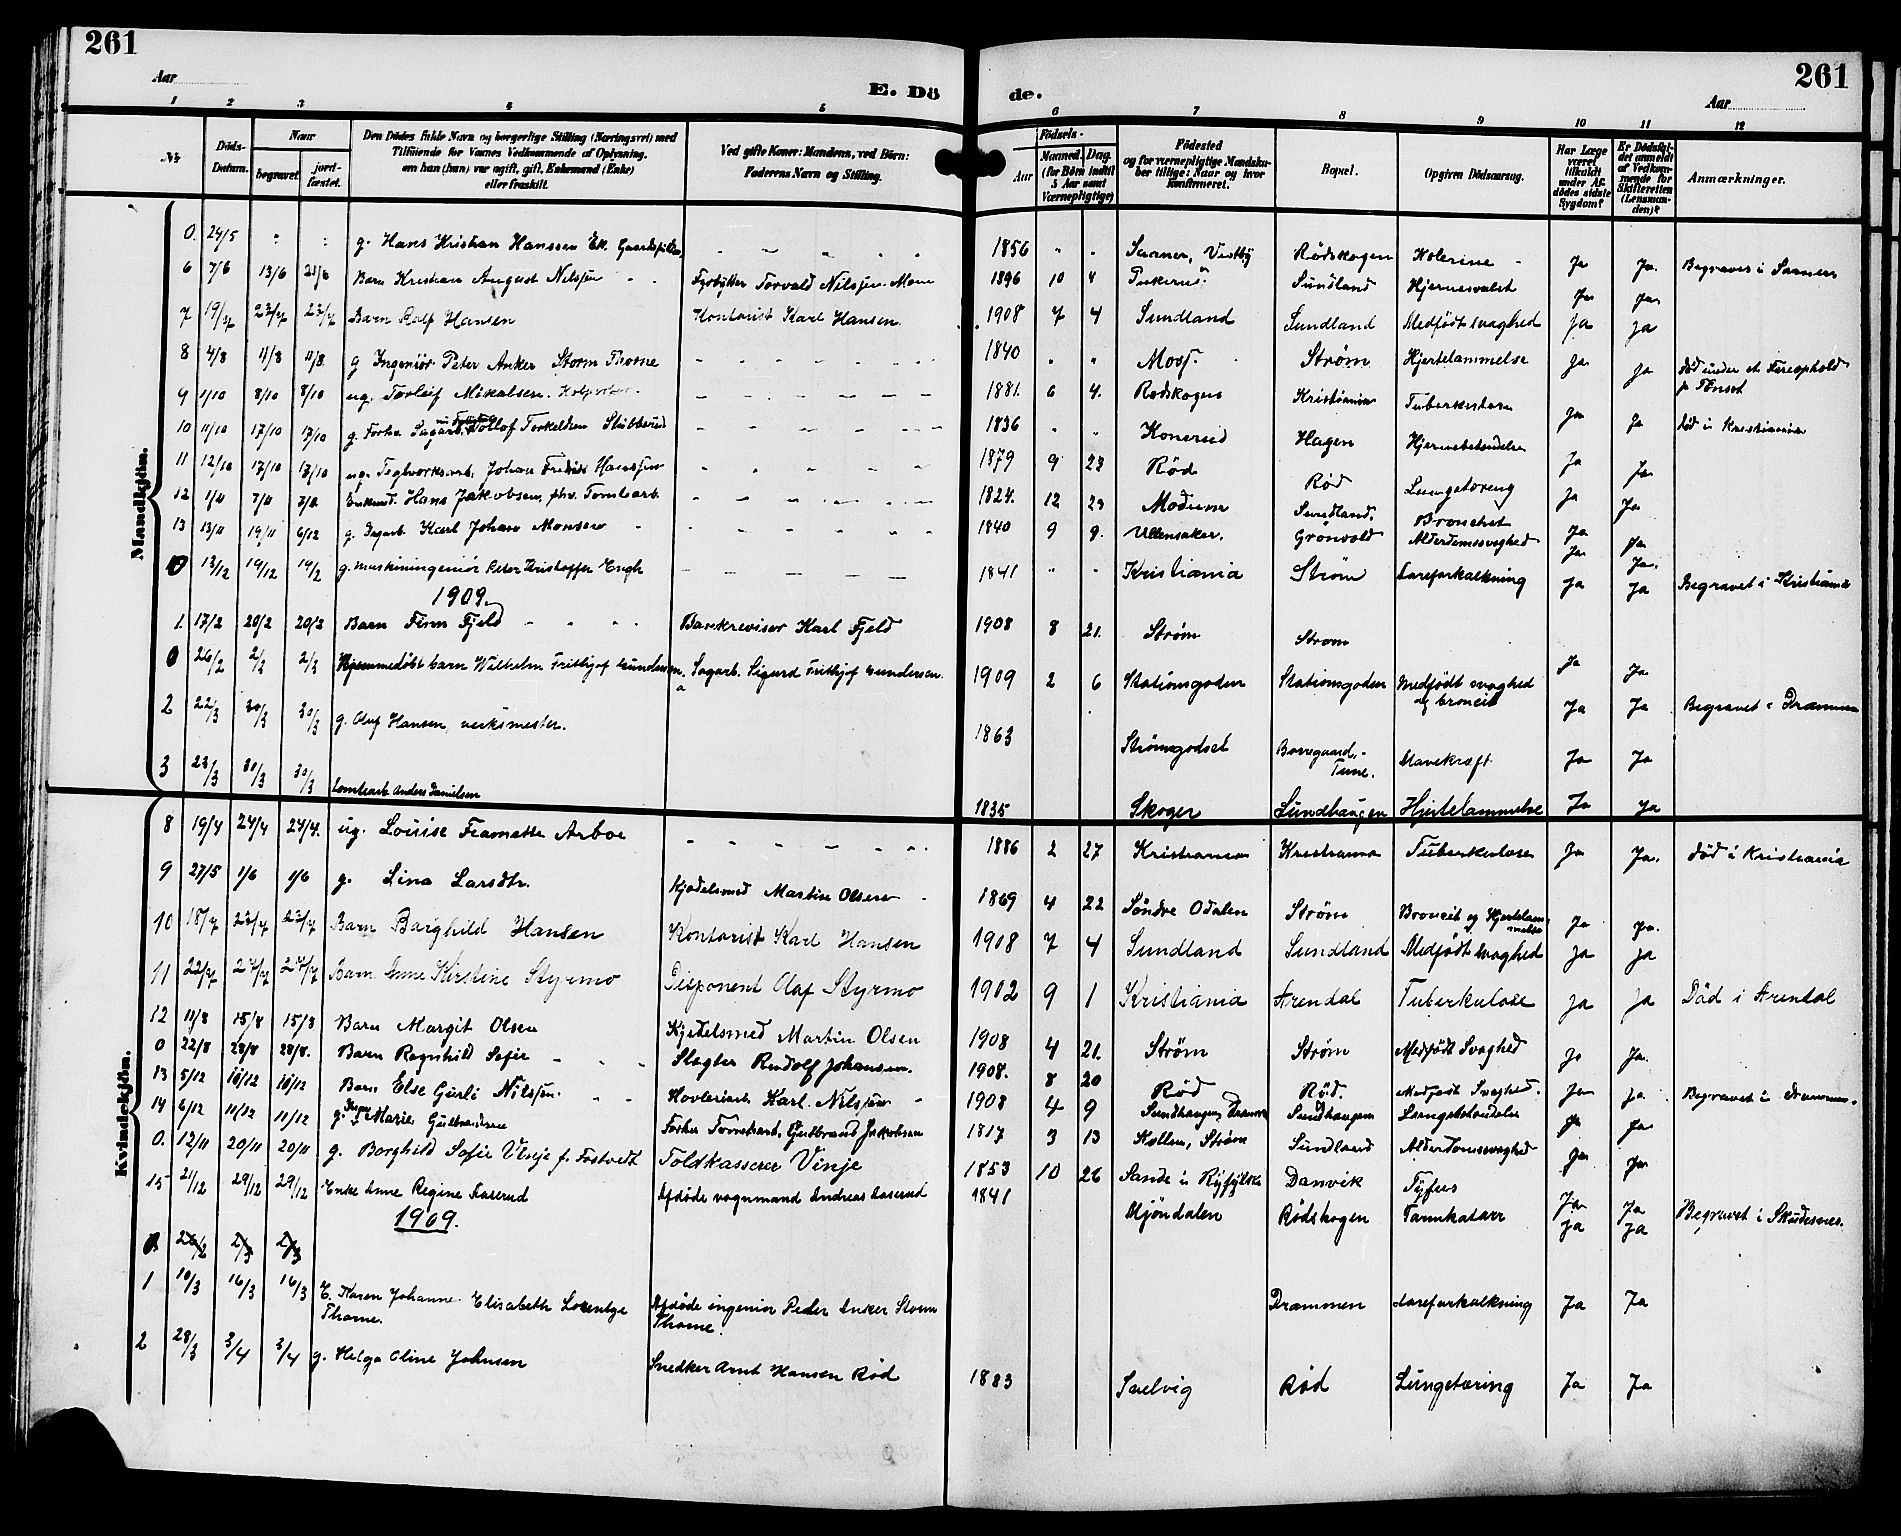 261
261
Aar
Aar
E. Dö de.
1 2 3 4 5 6 7 8 9 10 11 12
No
Döds-Datum.
Naar
begravet
jord-fæstet.
Den Dödes fulde Navn og borgerlige Stilling (Næringsvei) med Tilföiende for Voxnes Vedkommende af Oplysning, om han (hun) var ugift, gift, Enkemand (Enke) eller fraskilt.
Ved gifte Koner: Mandens, ved Börn: Faderens Navn og Stilling.
Födsels-
Aar
Maaned. Dag.
(for Börn indtil 5 Aar samt Værnepligtige)
Födested og for værnepligtige Mandskaber tillige: Naar og hvor konfirmeret.
Bopæl.
Opgiven Dödsaarsag.
Har Læge været tilkaldt under Afdödes sidste Sygdom?
Er Dödsfaldet anmeldt af Vedkommende for Skifteretten (Lensmanden)?
Anmærkninger.
Mandkjön.
0. 24/5 " " g. Hans Kristian Hanssen 1856 " " Vestby Rødskogen Kolerine Ja Ja. Begravet i
6 7/6 13/6 21/6 Barn Kristian August Nilsen Fyrbøter Torvald Nilsen 1896 10 4 Sundland Ja Ja
7 19/7 23/7 23/7 Barn Rolf Hansen Kontorist Karl Hansen. 1908 7 4 Sundland Sundland Medfödt svaghed Ja Ja
8 4/8 11/8 11/8 g Ingeniör Peter Anker Storm Thorne 1840 " " Moss. Strøm Hjertelammelse Ja Ja död under et Ferieophold p Tönset
9 1/10 8/10 8/10 ug. Torleif Mikalsen. 1881. 6 4. Rødskogen Kristiania Tuberkulose Ja Ja död i Kristiania
10 11/10 17/10 17/10 g. Torkeldsen Stubberud 1836 " " Konerud Hagen Hjernebetændelse Ja Ja
11 12/10 17/10 17/10 ug. Teglverksarb. Johan Fredrik Hanssen 1879 9 23 Rød Rød Lungetæring Ja Ja
12 1/11 7/11 7/11 Enkemd. Hans Jakobsen, fhv. Tomtearb. 1824. 12 23 Modum Sundland. Bronchit Ja Ja
13 13/11 19/11 6/12 g. Dagarb. Karl Johan Monsen 1840 9 9. Ullensaker. Grönvold Alderdomssvaghed Ja Ja.
0 13/12 19/12 19/12 g. maskiningeniör Peter Kristoffer Engh 1841 " " Kristiania Strøm Aareforkalkning Ja Ja Begravet i Kristiania
1909.
1. 17/2 20/2 20/2 Barn Finn Fjeld Bankrevisor Karl Fjeld 1908 8 21. Strøm Strøm Ja Ja
0 26/2 2/3 2/3 Hjemmedöbt barn Wilhelm Frithjof Gundersen. Sagarb. Sigurd Frithjof Gundersen. 1909 2 6 Stationsgaden Stationsgaden Medfödt svaghed og broncit Ja Ja Begravet i Drammen
2 22/3 30/3 30/3 g. Oluf Hansen, verksmester. 1863 Strømsgodset Borregaard, Tune. Mavekræft Ja Ja
3 23/3 30/3 30/3 Tomtearb Anders Danielsen 1835 Skoger Sundhaugen Hjertelammelse Ja Ja
Kvindekjön.
8 19/4 24/4 24/4. ug. Louise Arboe 1886 2 27 Kristiania Kristiania Tuberkulose Ja Ja. död i Kristiania
9 27/5 1/6 1/6 g. Lina Larsdtr. Kjedelsmed Martin Olsen 1869 4 22 Söndre Odalen Strøm Broncit og Hjertelammelse Ja Ja.
10 18/7 23/7 23/7 Barn Borghild Hansen Kontorist Karl Hansen 1908 7 4 Sundland Sundland Medfödt svaghed Ja Ja
11 22/7 27/7 27/7 Barn Anne Kirstine Styrmo Disponent Olaf Styrmo 1902 9 1 Kristiania Arendal Tuberkulose Ja Ja Död i Arendal
12 11/8 15/8 15/8 Barn Margit Olsen Kjedelsmed Martin Olsen 1908 4 21. Strøm Strøm Medfödt Svaghed Ja Ja.
0 22/8 28/8 28/8. Barn Ragnhild Sofie Slagter Rudolf Johansen. 1908. 8 20 Rød Rød. Medfödt Svaghed. Ja Ja Begravet i Drammen.
13 5/12 10/12 10/12 Barn Else Gurli Nilsen. Høvleriarb. Karl Nilsen 1908 4 9 Sundhaugen, Drammen Sundhaugen Lungebetændelse Ja Ja
14 6/12 11/12 11/12 g. Marie Gulbrandsen Gulbrand Jakobsen 1817 3 13 Strøm Sundland Alderdomssvaghed Ja Ja
0. 12/11 20/11 20/11 g. Borghild Sofie Vinje f. Tostvedt Toldkasserer Vinje 1853 10 26 Sande i Ryfylke Danvik Tyfus Ja Ja Begravet i Skudesnes.
15 21/12 29/12 29/12 Enke Anne Regine Aaserud Afdöde vognmand Andreas Aaserud 1841 Mjöndalen Rødskogen Tarmkatarr Ja Ja
1909.
0. 26/2 2/3 2/3
1 10/3 16/3 16/3 E. Karen Johanne Elisabeth Lorentze Thorne. Afdöde ingeniör Peder Anker Storm Thorne. Drammen Aareforkalkning Ja Ja
2 28/3 3/4 3/4 g. Helga Oline Johnsen Snedker Arnt Hansen Rød 1883 Selvig Rød Lungetæring Ja Ja